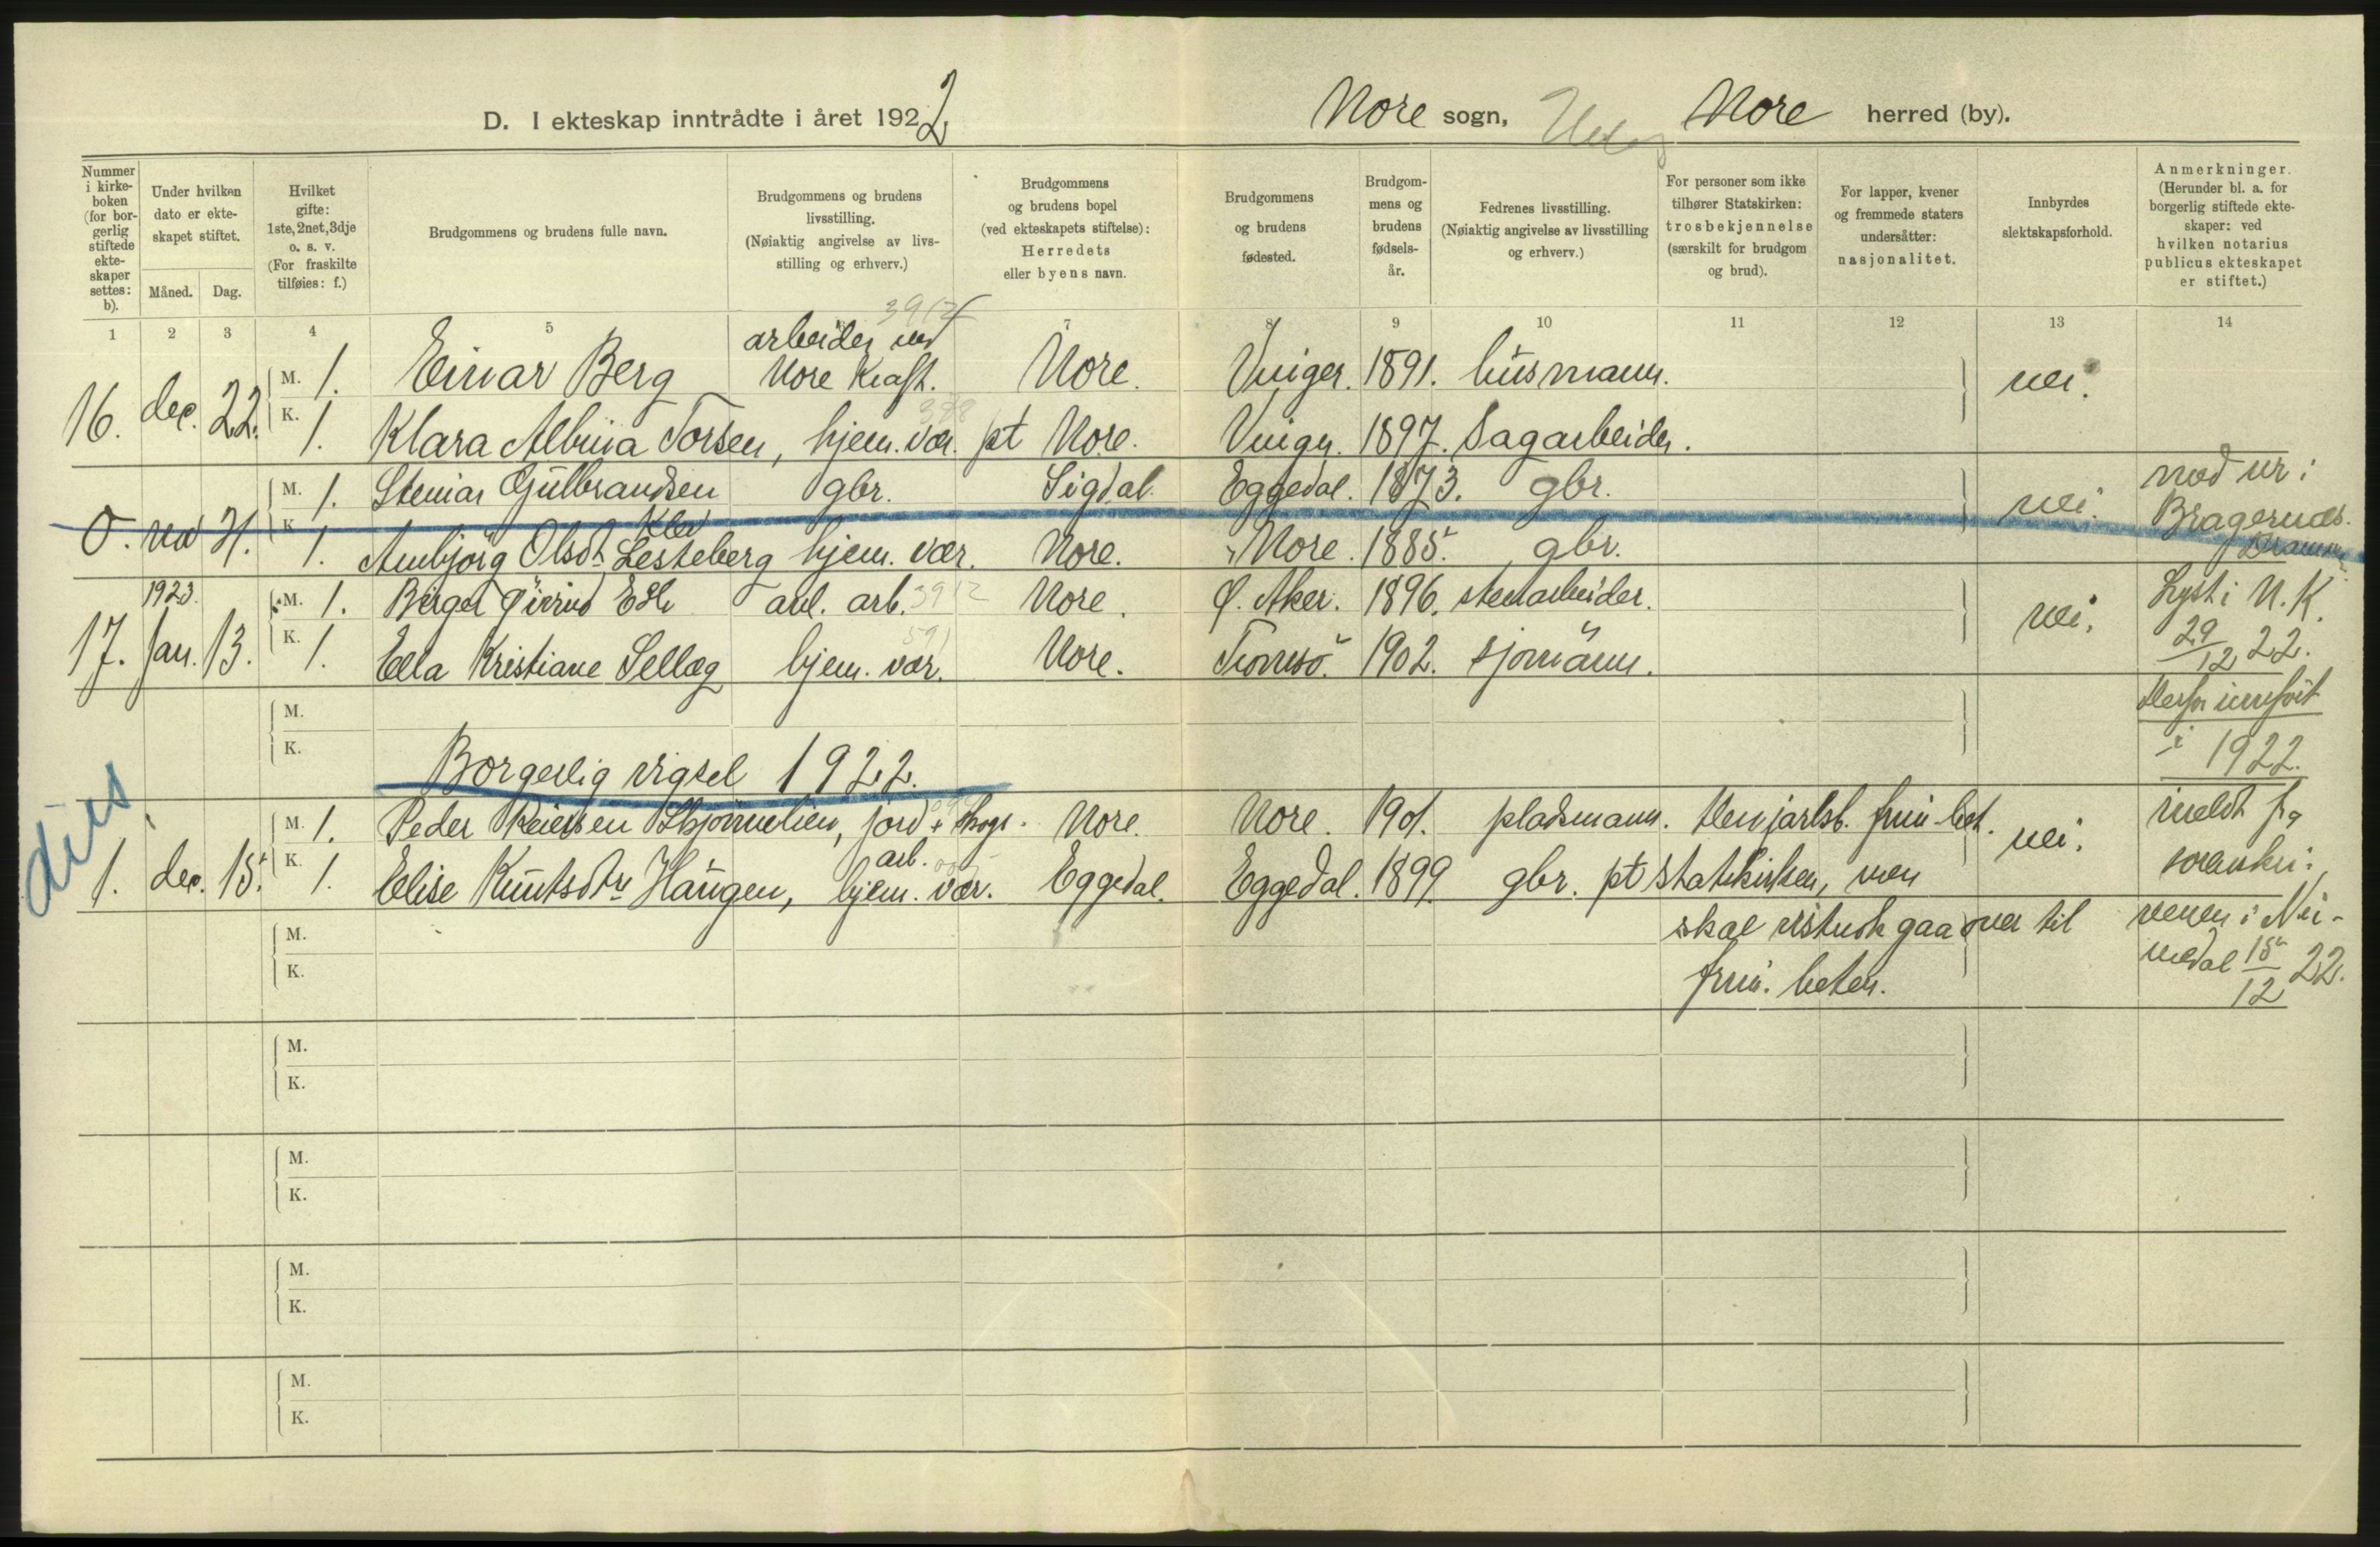 D. I ekteskap inntrådte i året 1922
Nore sogn, Nore herred (by).
Nummer i kirkeboken (for borgerlig stiftede ekteskaper settes: b).
Under hvilken dato er ekteskapet stiftet.
Måned. Dag.
Hvilket gifte: 1ste, 2net, 3dje o. s. v. (For fraskilte tilføies: f.)
Brudgommens og brudens fulle navn.
Brudgommens og brudens livsstilling. (Nøiaktig angivelse av livsstilling og erhverv.)
Brudgommens og brudens bopel (ved ekteskapets stiftelse): Herredets eller byens navn.
Brudgommens og brudens fødested.
Brudgommens og brudens fødselsår.
Fedrenes livsstilling. (Nøiaktig angivelse av livsstilling og erhverv.)
For personer som ikke tilhører Statskirken: trosbekjennelse (særskilt for brudgom og brud).
For lapper, kvener og fremmede staters undersåtter: nasjonalitet.
Innbyrdes slektskapsforhold.
Anmerkninger. (Herunder bl. a. for borgerlig stiftede ekteskaper: ved hvilken notarius publicus ekteskapet er stiftet.)
1 2 3 4 5 7 8 9 10 11 12 13 14
16. dec. 22. M. 1. Einar Berg arbeider ved Nore Kraft. Nore. Vinger. 1891. husmann. nei.
K. 1. Klara Albina Torsen, hjem. vær. pt Nore. Vinger. 1897. Sagarbeider.
0. nov 4. M. 1. Steinar Gulbrandsen gbr. Sigdal. Eggedal. 1873. gbr. nei. Bragernæs. Drammen
K. 1. Ambjörg Olsdt Lesteberg hjem. vær. Nore. Nore. 1885. gbr.
1923.
17. Jan. 13. M. 1. Birger arb. 3912 Nore. Ø. Aker. 1896. stenarbeider. nei. Lyst i N. K. 29/12 22.
K. 1. Ella Kristiane Sellæg hjem. vær. Nore. Tromsö. 1902. sjömann. Derfor innført i 1922.
M.
K.
Borgerlig vigsel 1922.
1. dec. 15. M. 1. Peder jord + skogs. arb. Nore. Nore. 1901. pladsmann. nei. meldt fra
K. 1. Elise Knutsdtr Haugen, hjem. vær. Eggedal. Eggedal. 1899. gbr. pt statskirken, men
skal gaa over til
M.
K.
15/12 22.
M.
K.
M.
K.
M.
K.
M.
K.